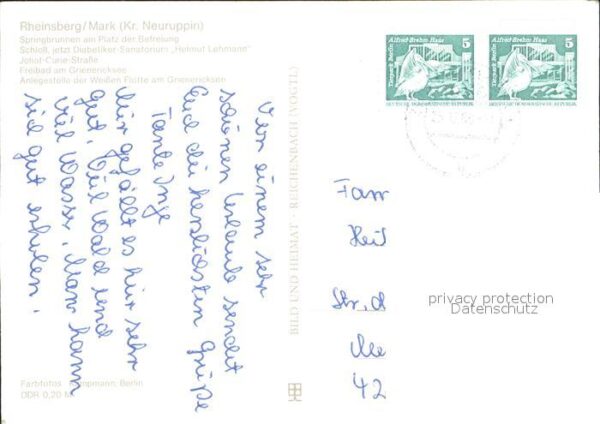 Rheinsberg/Mark (Kr. Neuruppin)
Springbrunnen am Platz der Befreiung
Schloß, jetzt Diabetiker-Sanatorium „Helmut Lehmann"
Joliot-Curie-Straße
Freibad am Grienericksee
Anlegestelle der Weißen Flotte am Grienericksee
Von einem sehr
schönen Urlaub sendet
Euch die herzlichsten Grüße
Tante Inge
Mir gefällt es hier sehr
gut. Viel Wald und
viel Wasser. Man kann
sich gut erholen.
Farbfotos: Kampmann, Berlin
DDR 0,20 M
BILD UND HEIMAT · REICHENBACH (VOGTL)
Alfred-Brehm-Haus
5
Tierpark Berlin
DEUTSCHE DEMOKRATISCHE REPUBLIK
Alfred-Brehm-Haus
5
Tierpark Berlin
DEUTSCHE DEMOKRATISCHE REPUBLIK
Fam
Str. d
42
privacy protection
Datenschutz